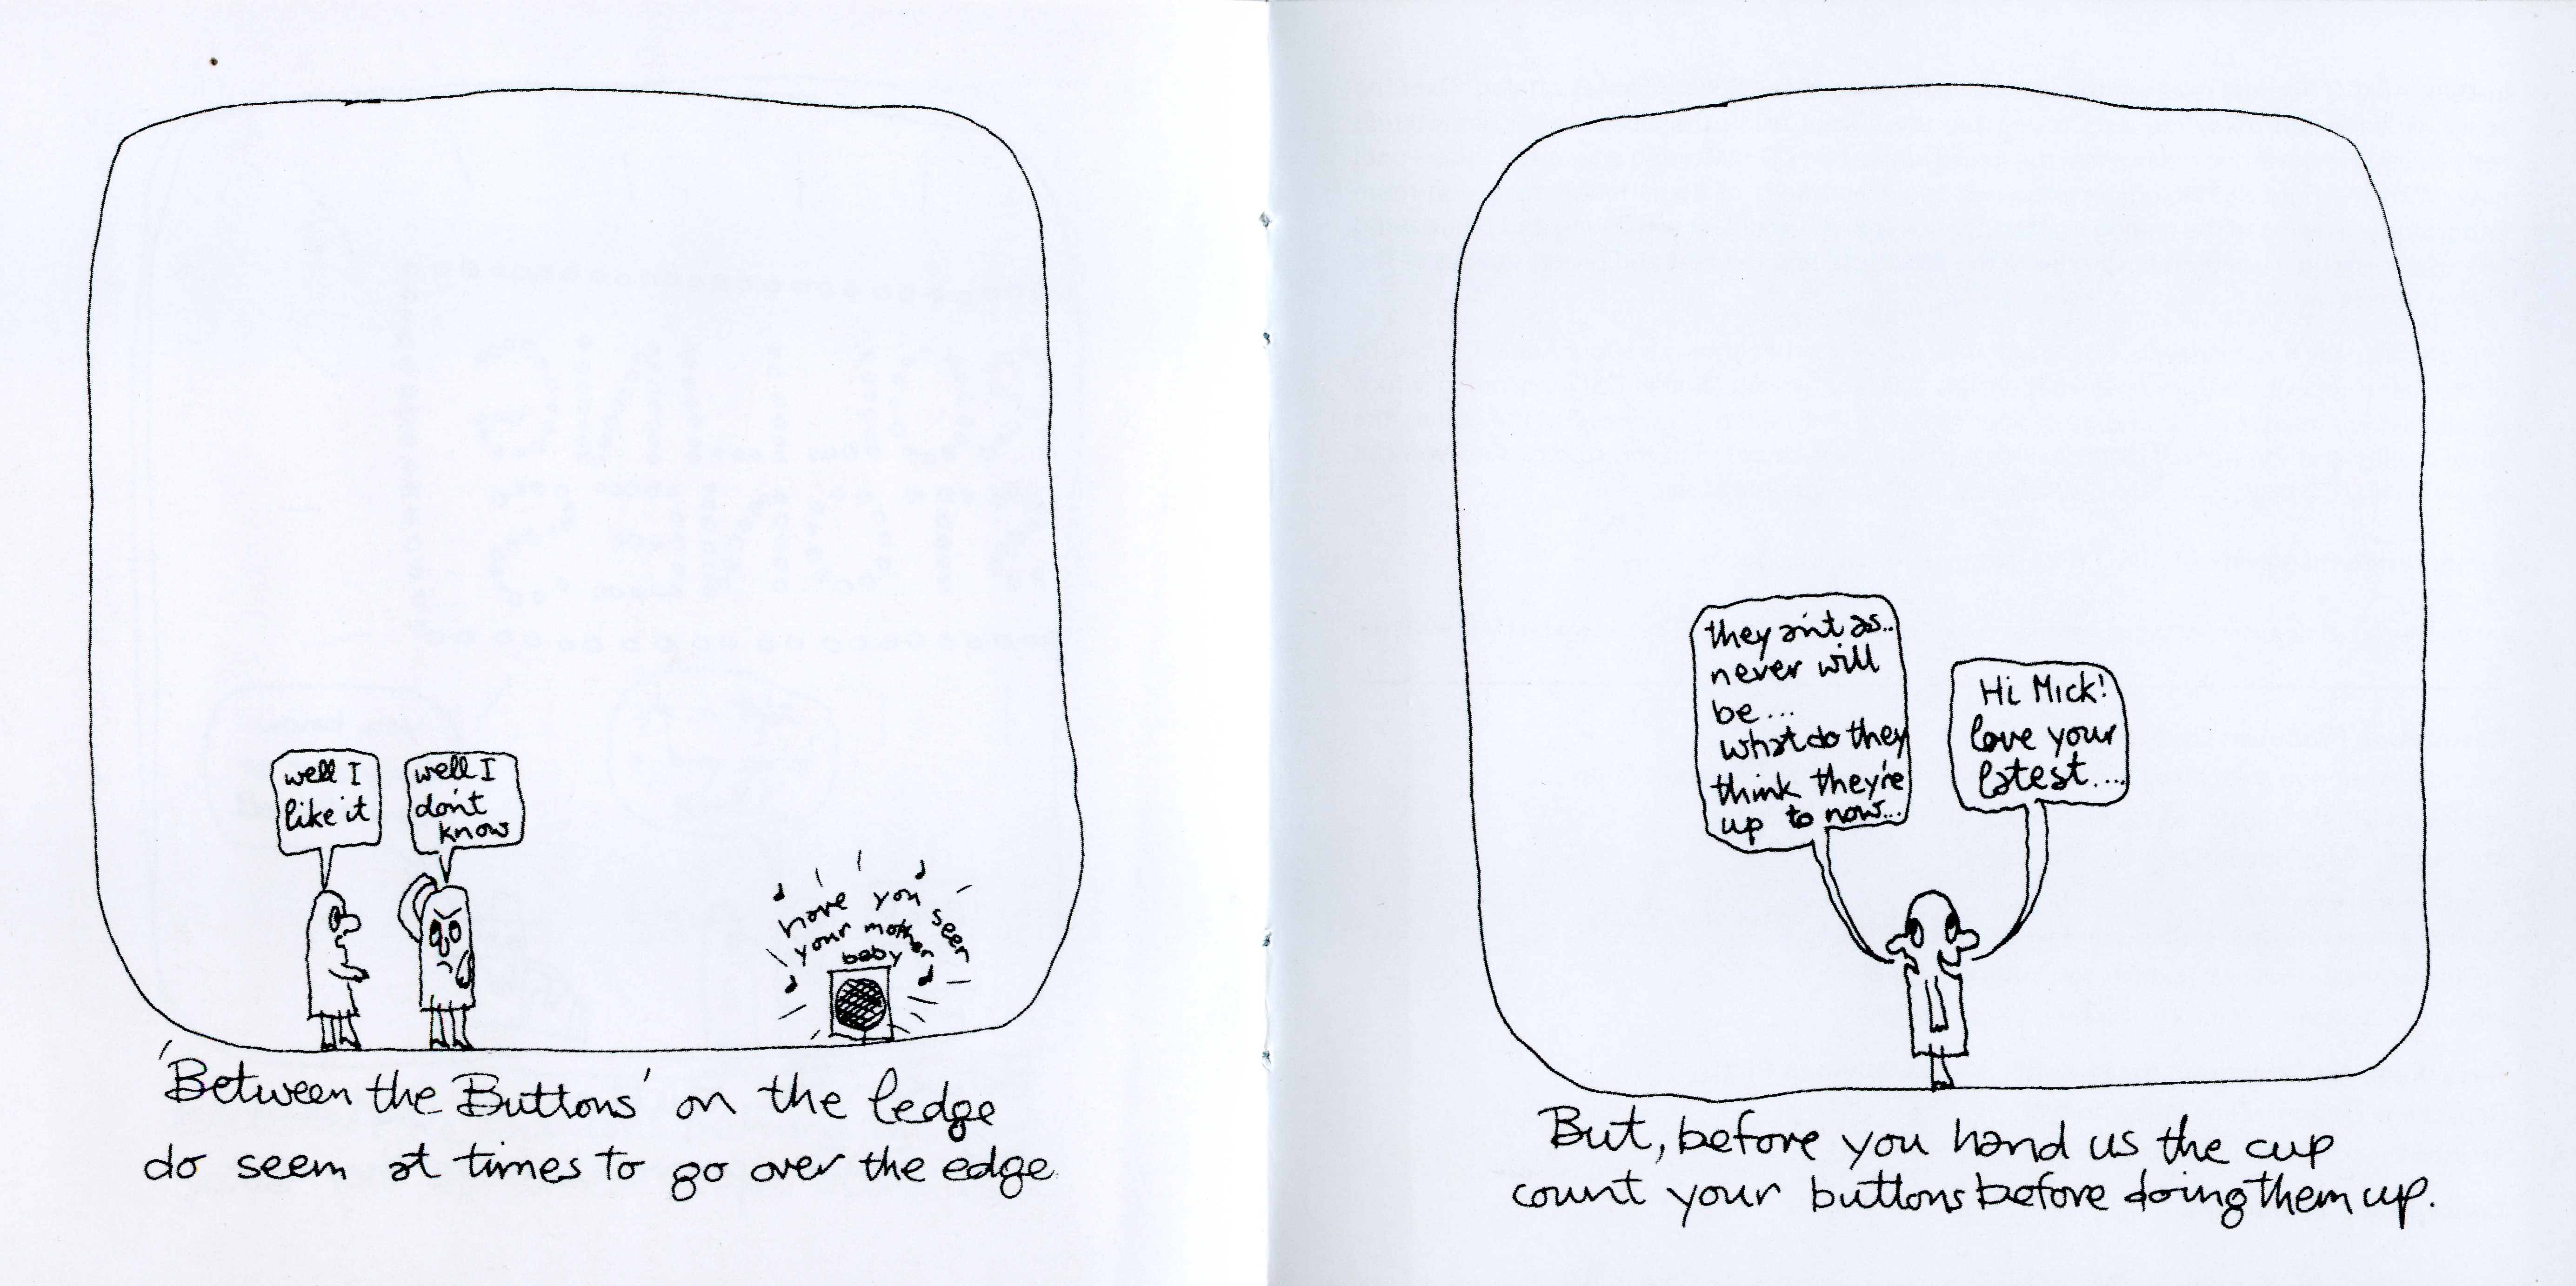 well I
like it
well I
don't
know
have you seen
your mother
baby
'Between the Buttons' on the ledge
do seem at times to go over the edge
they ain't as..
never will
be...
what do they
think they're
up to now...
Hi Mick!
love your
latest....
But, before you hand us the cup
count your buttons before doing them up.